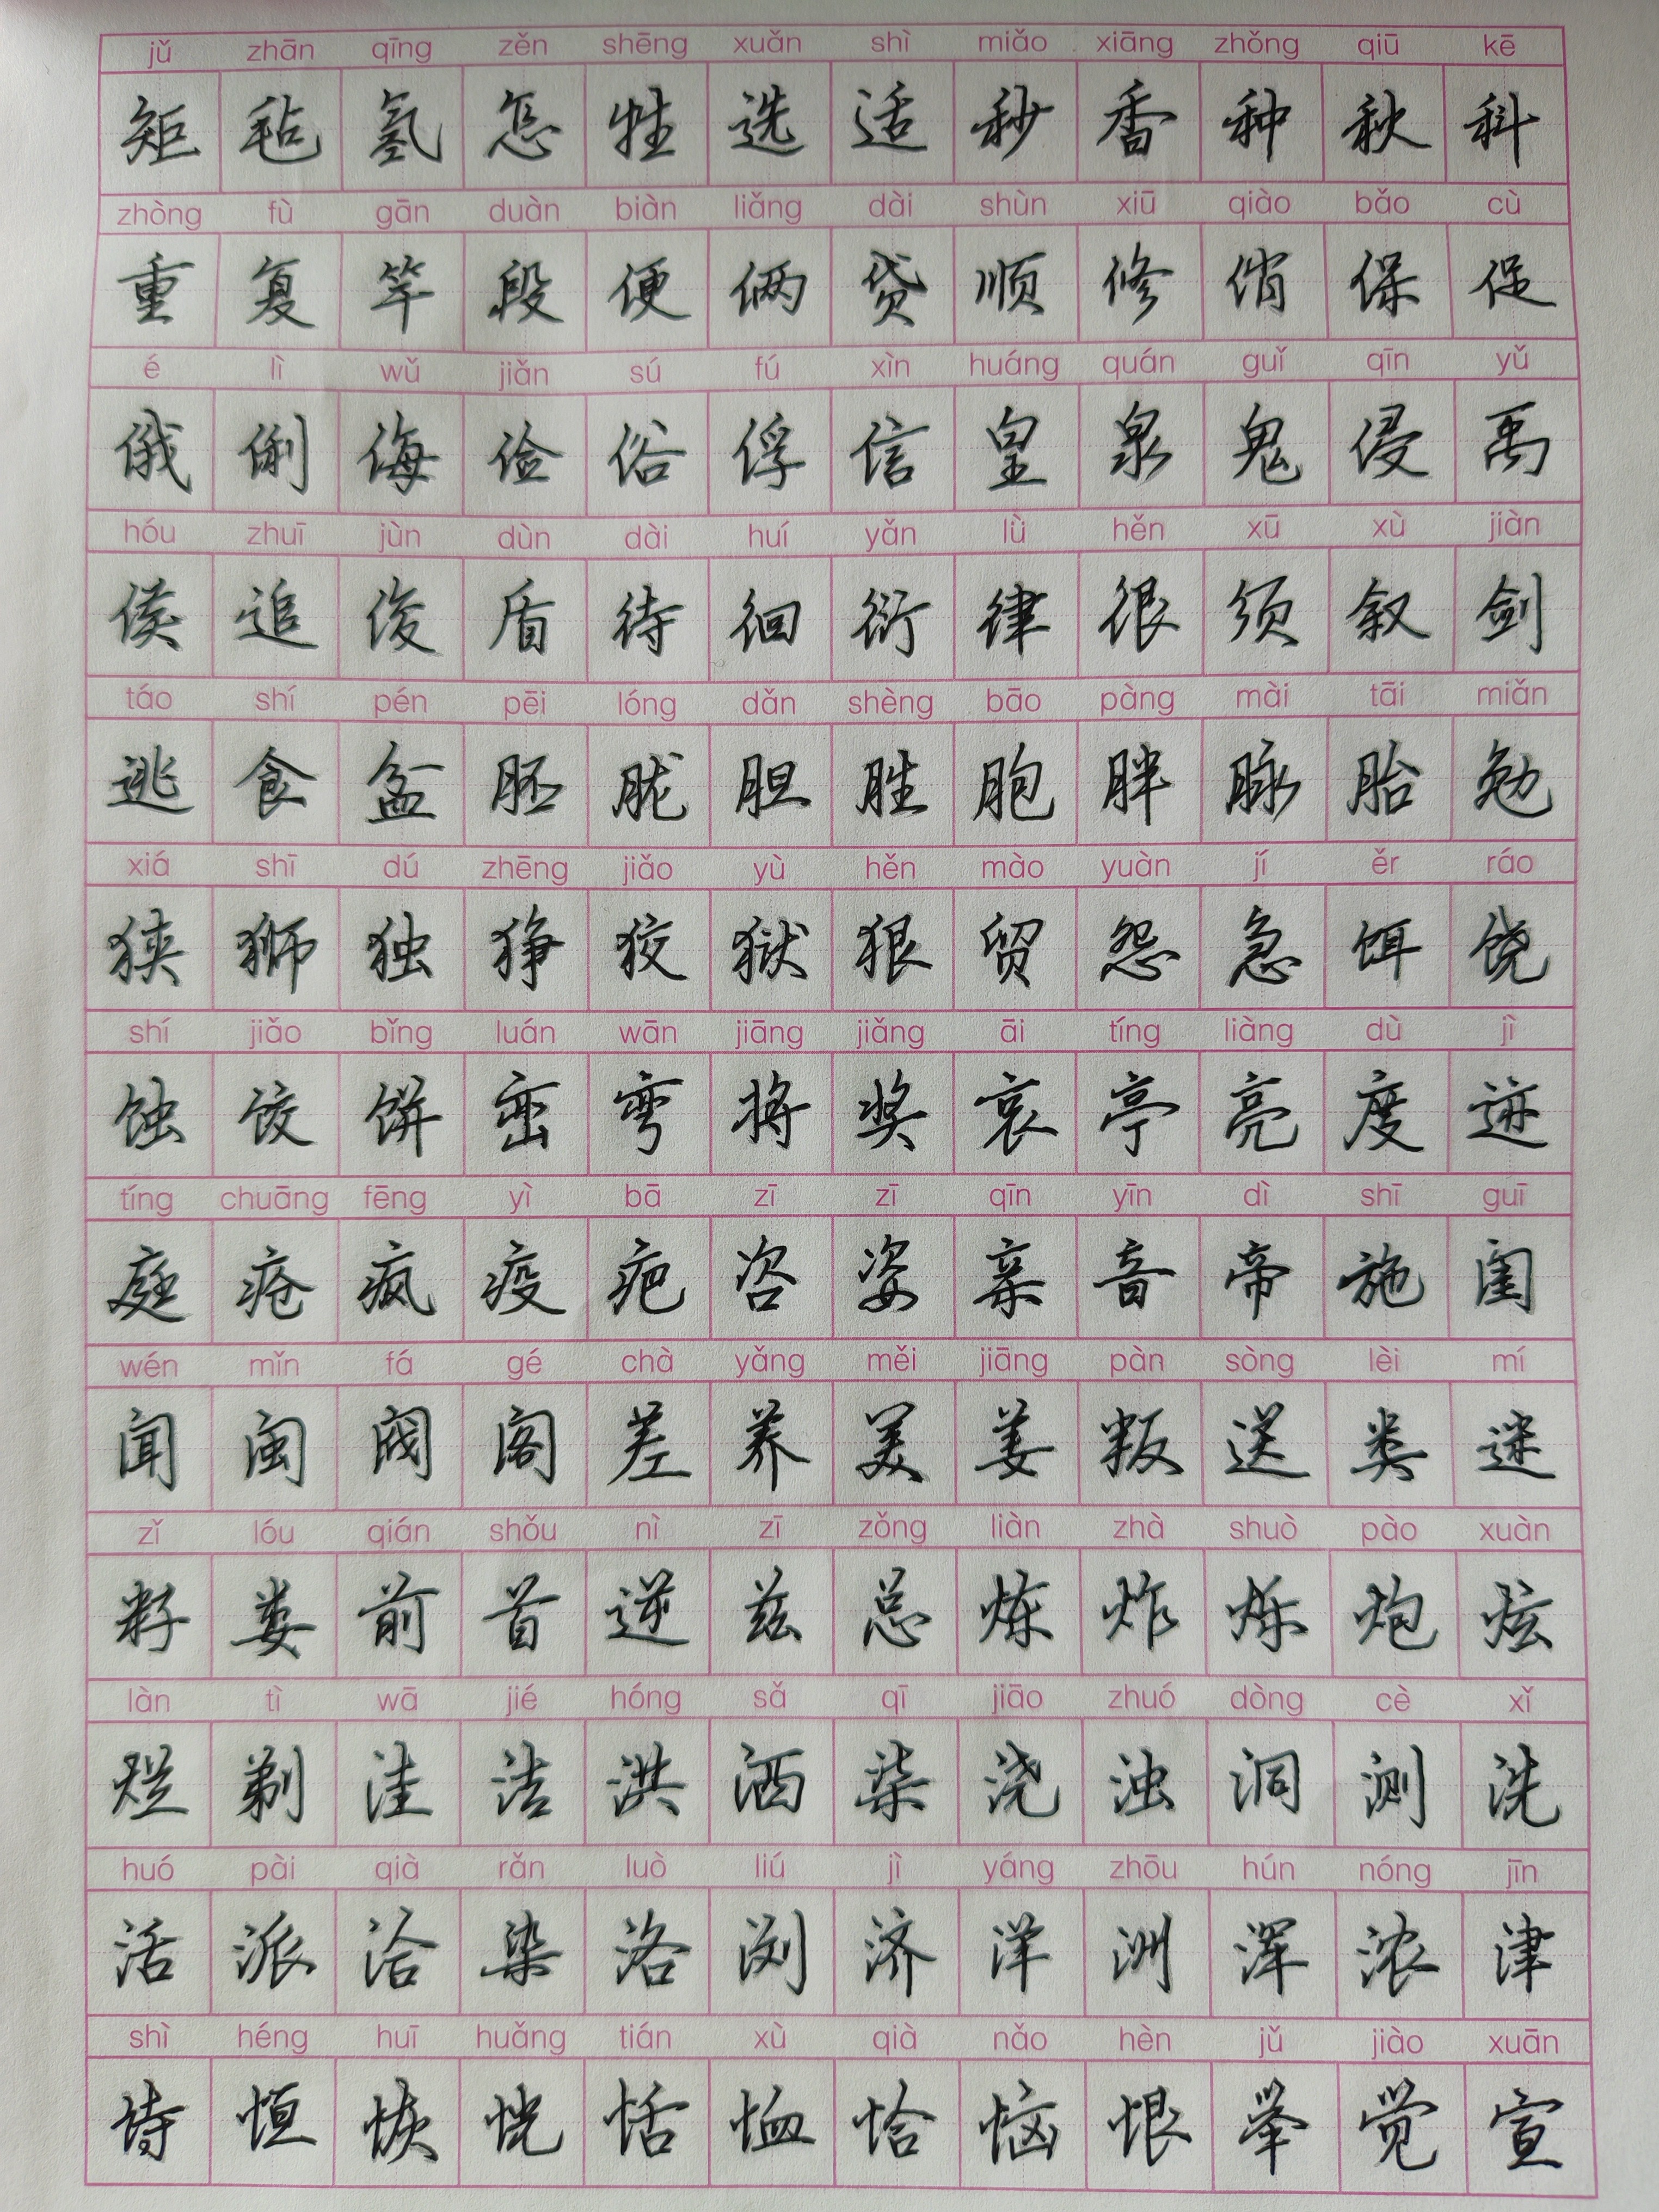 jǔ zhān qīng zěn shēng xuǎn shì miǎo xiāng zhǒng qiū kē
矩 毡 氢 怎 牲 选 适 秒 香 种 秋 科
zhòng fù gān duàn biàn liǎng dài shùn xiū qiào bǎo cù
重 复 竿 段 便 俩 贷 顺 修 俏 保 促
é lì wǔ jiǎn sú fú xìn huáng quán guǐ qīn yǔ
俄 俐 侮 俭 俗 俘 信 皇 泉 鬼 侵 禹
hóu zhuī jùn dùn dài huí yǎn lǜ hěn xū xù jiàn
侯 追 俊 盾 待 徊 衍 律 很 须 叙 剑
táo shí pén pēi lóng dǎn shèng bāo pàng mài tāi miǎn
逃 食 盆 胚 胧 胆 胜 胞 胖 脉 胎 勉
xiá shī dú zhēng jiǎo yù hěn mào yuàn jí ěr ráo
狭 狮 独 狰 狡 狱 狠 贸 怨 急 饵 饶
shí jiǎo bǐng luán wān jiāng jiǎng āi tíng liàng dù jì
蚀 饺 饼 峦 弯 将 奖 哀 亭 亮 度 迹
tíng chuāng fēng yì bā zī zī qīn yīn dì shī guī
庭 疮 疯 疫 疤 咨 姿 亲 音 帝 施 闺
wén mǐn fá gé chà yǎng měi jiāng pàn sòng lèi mí
闻 闽 阀 阁 差 养 美 姜 叛 送 类 迷
zǐ lóu qián shǒu nì zī zǒng liàn zhà shuò pào xuàn
籽 娄 前 首 逆 兹 总 炼 炸 烁 炮 炫
làn tì wā jié hóng sǎ qī jiāo zhuó dòng cè xǐ
烂 剃 洼 洁 洪 洒 柒 浇 浊 洞 测 洗
huó pài qià rǎn luò liú jì yáng zhōu hún nóng jīn
活 派 洽 染 洛 浏 济 洋 洲 浑 浓 津
shì héng huī huǎng tián xù qià nǎo hèn jǔ jiào xuān
恃 恒 恢 恍 恬 恤 恰 恼 恨 举 觉 宣